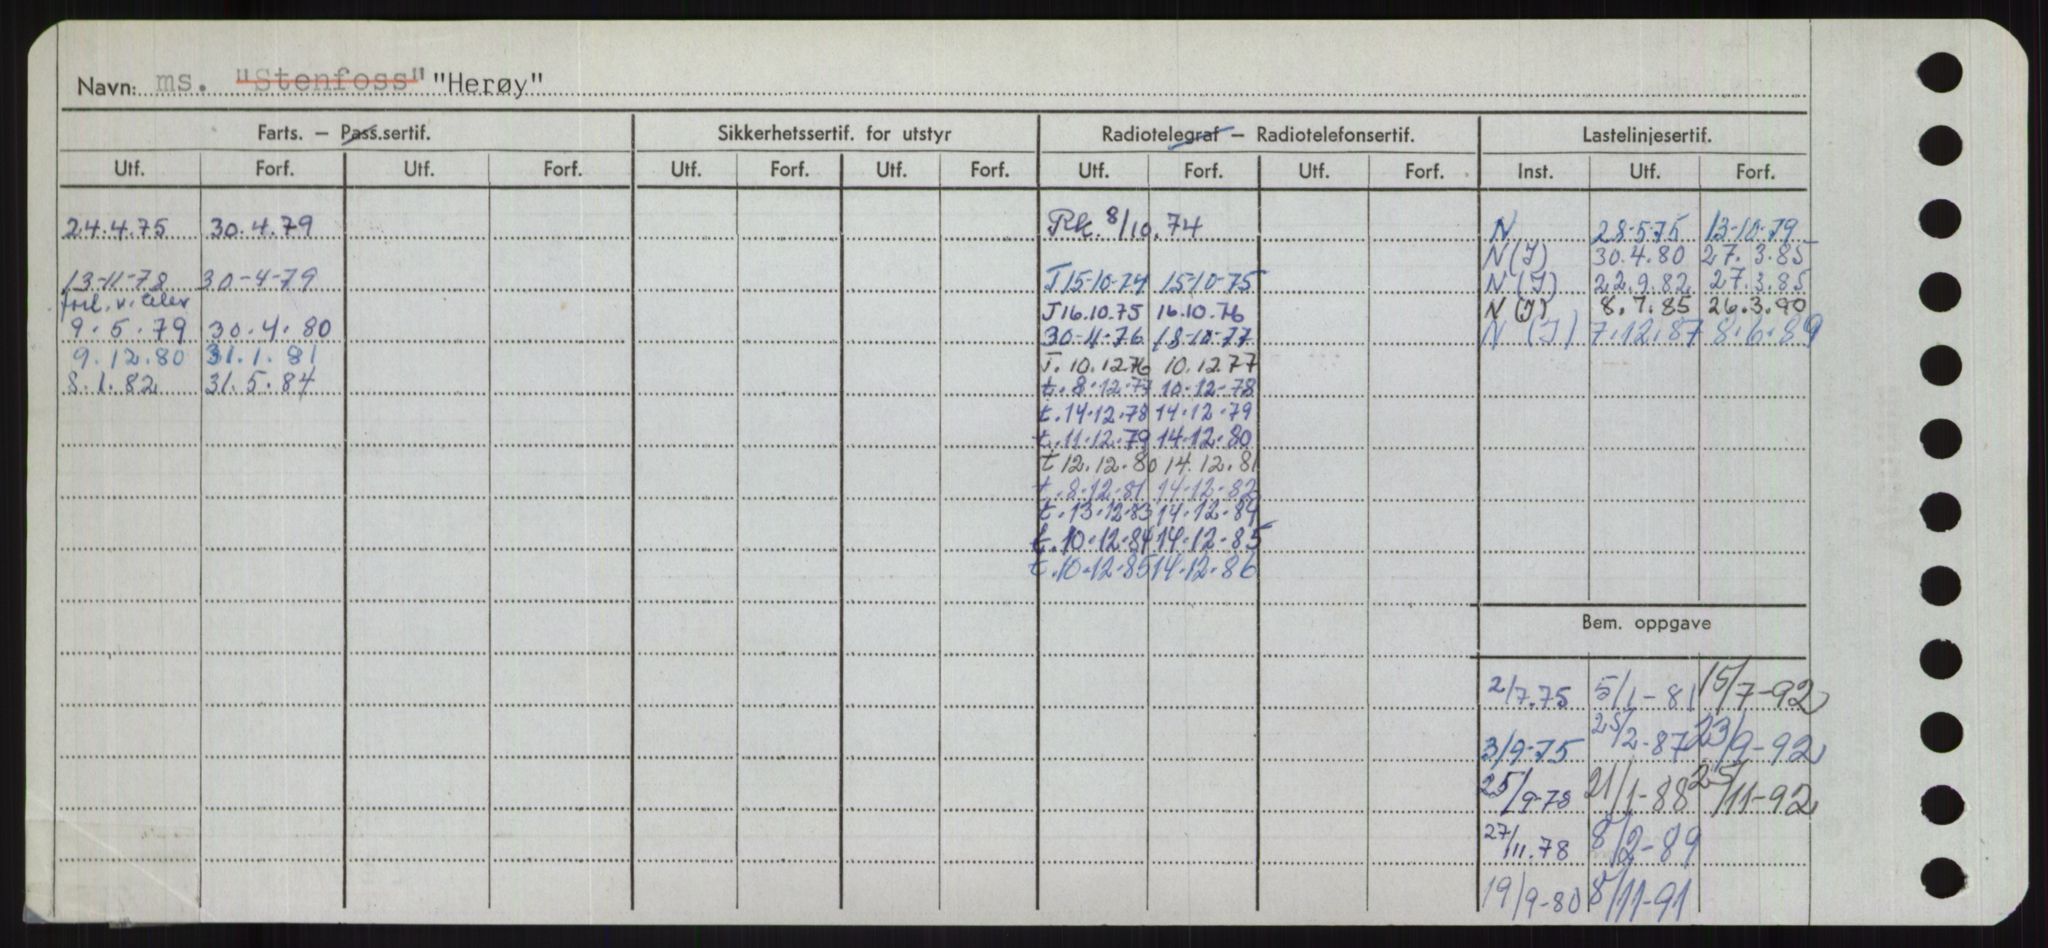 Navn: ms. "Stenfoss" "Herøy"
Farts. — Pass.sertif. Sikkerhetssertif. for utstyr Radiotelegraf — Radiotelefonsertif. Lastelinjesertif.
Utf. Forf. Utf. Forf. Utf. Forf. Utf. Forf. Utf. Forf. Utf. Forf. Inst. Utf. Forf.
24.4.75 30.4.79 Rk. 8/10.74 N 28-5-75 13-10-79
N(J) 30.4.80 27.3.85
13-11-78 30-4-79 T 15-10-74 15-10-75 N(J) 22.9.82 27.3.85
forl. v. telex J 16.10.75 16.10.76 N(J) 8.7.85 26.3.90
9.5.79 30.4.80 30-11-76 18-10-77 N (J) 7.12.87 8.6.89
9.12.80 31.1.81 T. 10.12.76 10.12.77
8.1.82 31.5.84 t. 8-12-77 10-12-78
t. 14-12-78 14-12-79
t. 11-12-79 14-12-80
t 12.12.80 14.12.81
t. 8-12-81 14-12-82
t. 13-12-83 14-12-84
t. 10-12-84 14-12-85
t. 10-12-85 14-12-86
Bem. oppgave
2/7.75 5/1-81 15/7-92
3/9-75 25/2-87 23/9-92
25/9-78 21/1-88 25/11-92
27/11.78 8/2-89
19/9-80 8/11-91